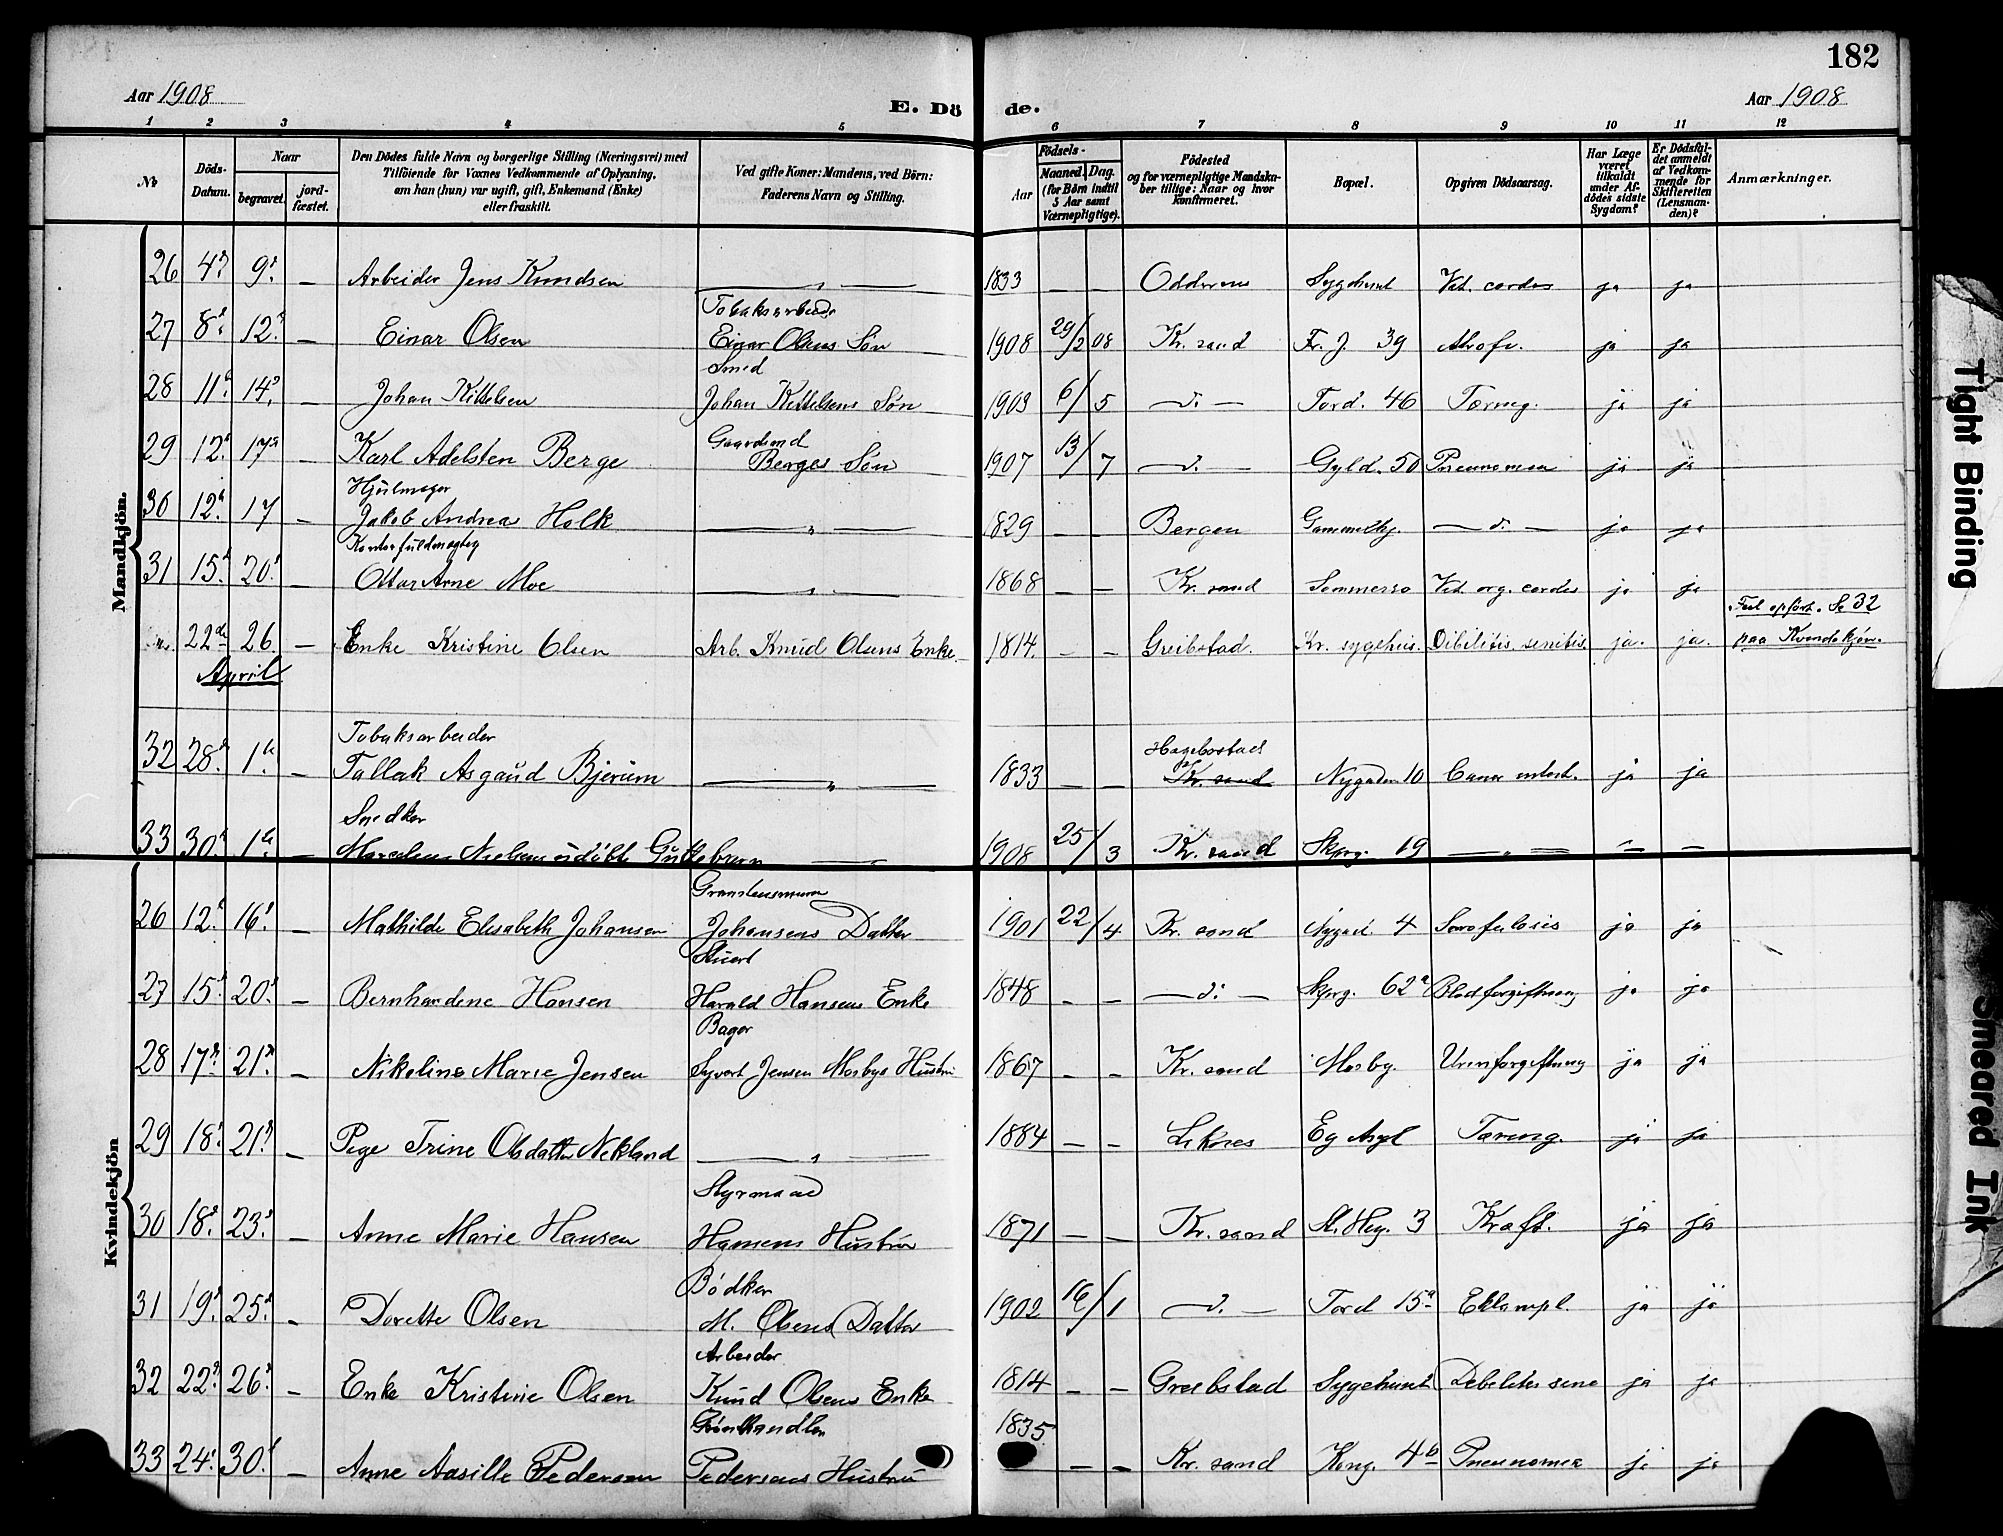 182
Aar 1908
E. Dö de.
Aar 1908
1 2 3 4 5 6 7 8 9 10 11 12
No
Döds-Datum.
Naar
begravet.
jord-fæstet.
Den Dödes fulde Navn og borgerlige Stilling (Næringsvei) med
Tilföiende for Voxnes Vedkommende af Oplysning,
om han (hun) var ugift, gift, Enkemand (Enke)
eller fraskilt.
Ved gifte Koner: Mandens, ved Börn:
Faderens Navn og Stilling.
Födsels-
Aar
Maaned. Dag.
(for Börn indtil
5 Aar samt
Værnepligtige).
Födested
og for værnepligtige Mandska-
ber tillige: Naar og hvor
konfirmeret.
Bopæl.
Opgiven Dödsaarsag.
Har Læge
været
tilkaldt
under Af-
dödes sidste
Sygdom?
Er Dödsfal-
det anmeldt
af Vedkom-
mende for
Skifteretten
(Lensman-
den)?
Anmærkninger.
Mandkjön.
26 4 9 — Arbeider Jens Knudsen — " — 1833 — — Oddernes Sygehuset Vit. cordis ja ja
Tobaksarbeider
27 8 12 — Einar Olsen Einar Olsens Søn 1908 29/2 08 Kr. sand Fr. J. 39 Atrofi. ja ja
Smed
28 11 14 — Johan Kittelsen Johan Kittelsens Søn 1903 6/5 — d. — Tord. 46 Tæring. ja ja
Gaardmd
29 12 17 — Karl Adelsten Berge Berges Søn 1907 13/7 — d. — Gyld. 50 Pneunomea ja ja
Hjulmager
30 12 17 — Jakob Andrea Holk — " — 1829 — — Bergen Gammelby. — d. — ja ja
Kontorfuldmægtig
31 15 20 — Ottar Arne Moe — " — 1868 — — Kr. sand Vit. org. cordis ja ja
Feil opført. Se 32
22de 26 — Enke Kristine Olsen Arb. Knud Olsens Enke. 1814. — — Greibstad. Kr. sygehus. Dibilitis senilis. ja. ja. paa Kvindekjøn.
April
Tobaksarbeider
Hægebostad
32 28 1 — Tallak Asgaud Bjerum — " — 1833 — — Kr. sand Nygaden 10 ja ja
Snedker
33 30 1 — Nielsens udøbte Guttebarn — 1908 25/3 Kr. sand Skprg. 19 — " — — —
Kvindekjön
26 12 16 — Mathilde Elisabeth Johansen Johansens Datter 1901 22/4 Kr. sand Nygad. 4 Scrofulosis ja ja
Stuert
27 15 20 — Bernhardine Hansen Harald Hansens Enke 1848 — — — d. — Skprg. 62a Blodforgiftning ja ja
Bager
28 17 21 — Nikoline Marie Jensen Syvert Jensen Mosbys Hustru 1867 — — Kr. sand Mosby. Urinforgiftning ja ja
29 18 21 — Pige Trine Olsdatter Nekland — " — 1884 — — Eg Asyl Tæring. ja ja
Styrmand
30 18 23 — Anne Marie Hansen Hansens Hustru 1871 — — Kr. sand 3 Kræft. ja ja
Bødker
31 19 25 — Dorette Olsen M. Olsens Datter 1902 16/1 — d. — Tord 15a Eklampl. ja ja
Arbeider
32 22 26 — Enke Kristine Olsen Knud Olsens Enke 1814 — — Greibstad Sygehuset Debilitis sene ja ja
Grønthandler
33 24 30 — Anne Aasille Pedersen Pedersens Hustru 1835 — — Kr. sand Kong. 4b Pneunomea ja ja
Tight Binding
Smeared Ink